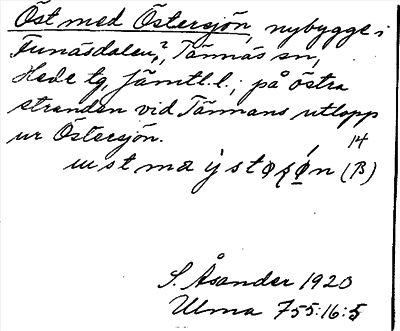 Öst med Östersjön, nybygge i
Funäsdalen,?, Tännäs sn,
Hede tg, Jämtl.l.; på östra
stranden vid Tännans utlopp
ur Östersjön.
14
(B)
S. Åsander 1920
Ulma 755:16:5